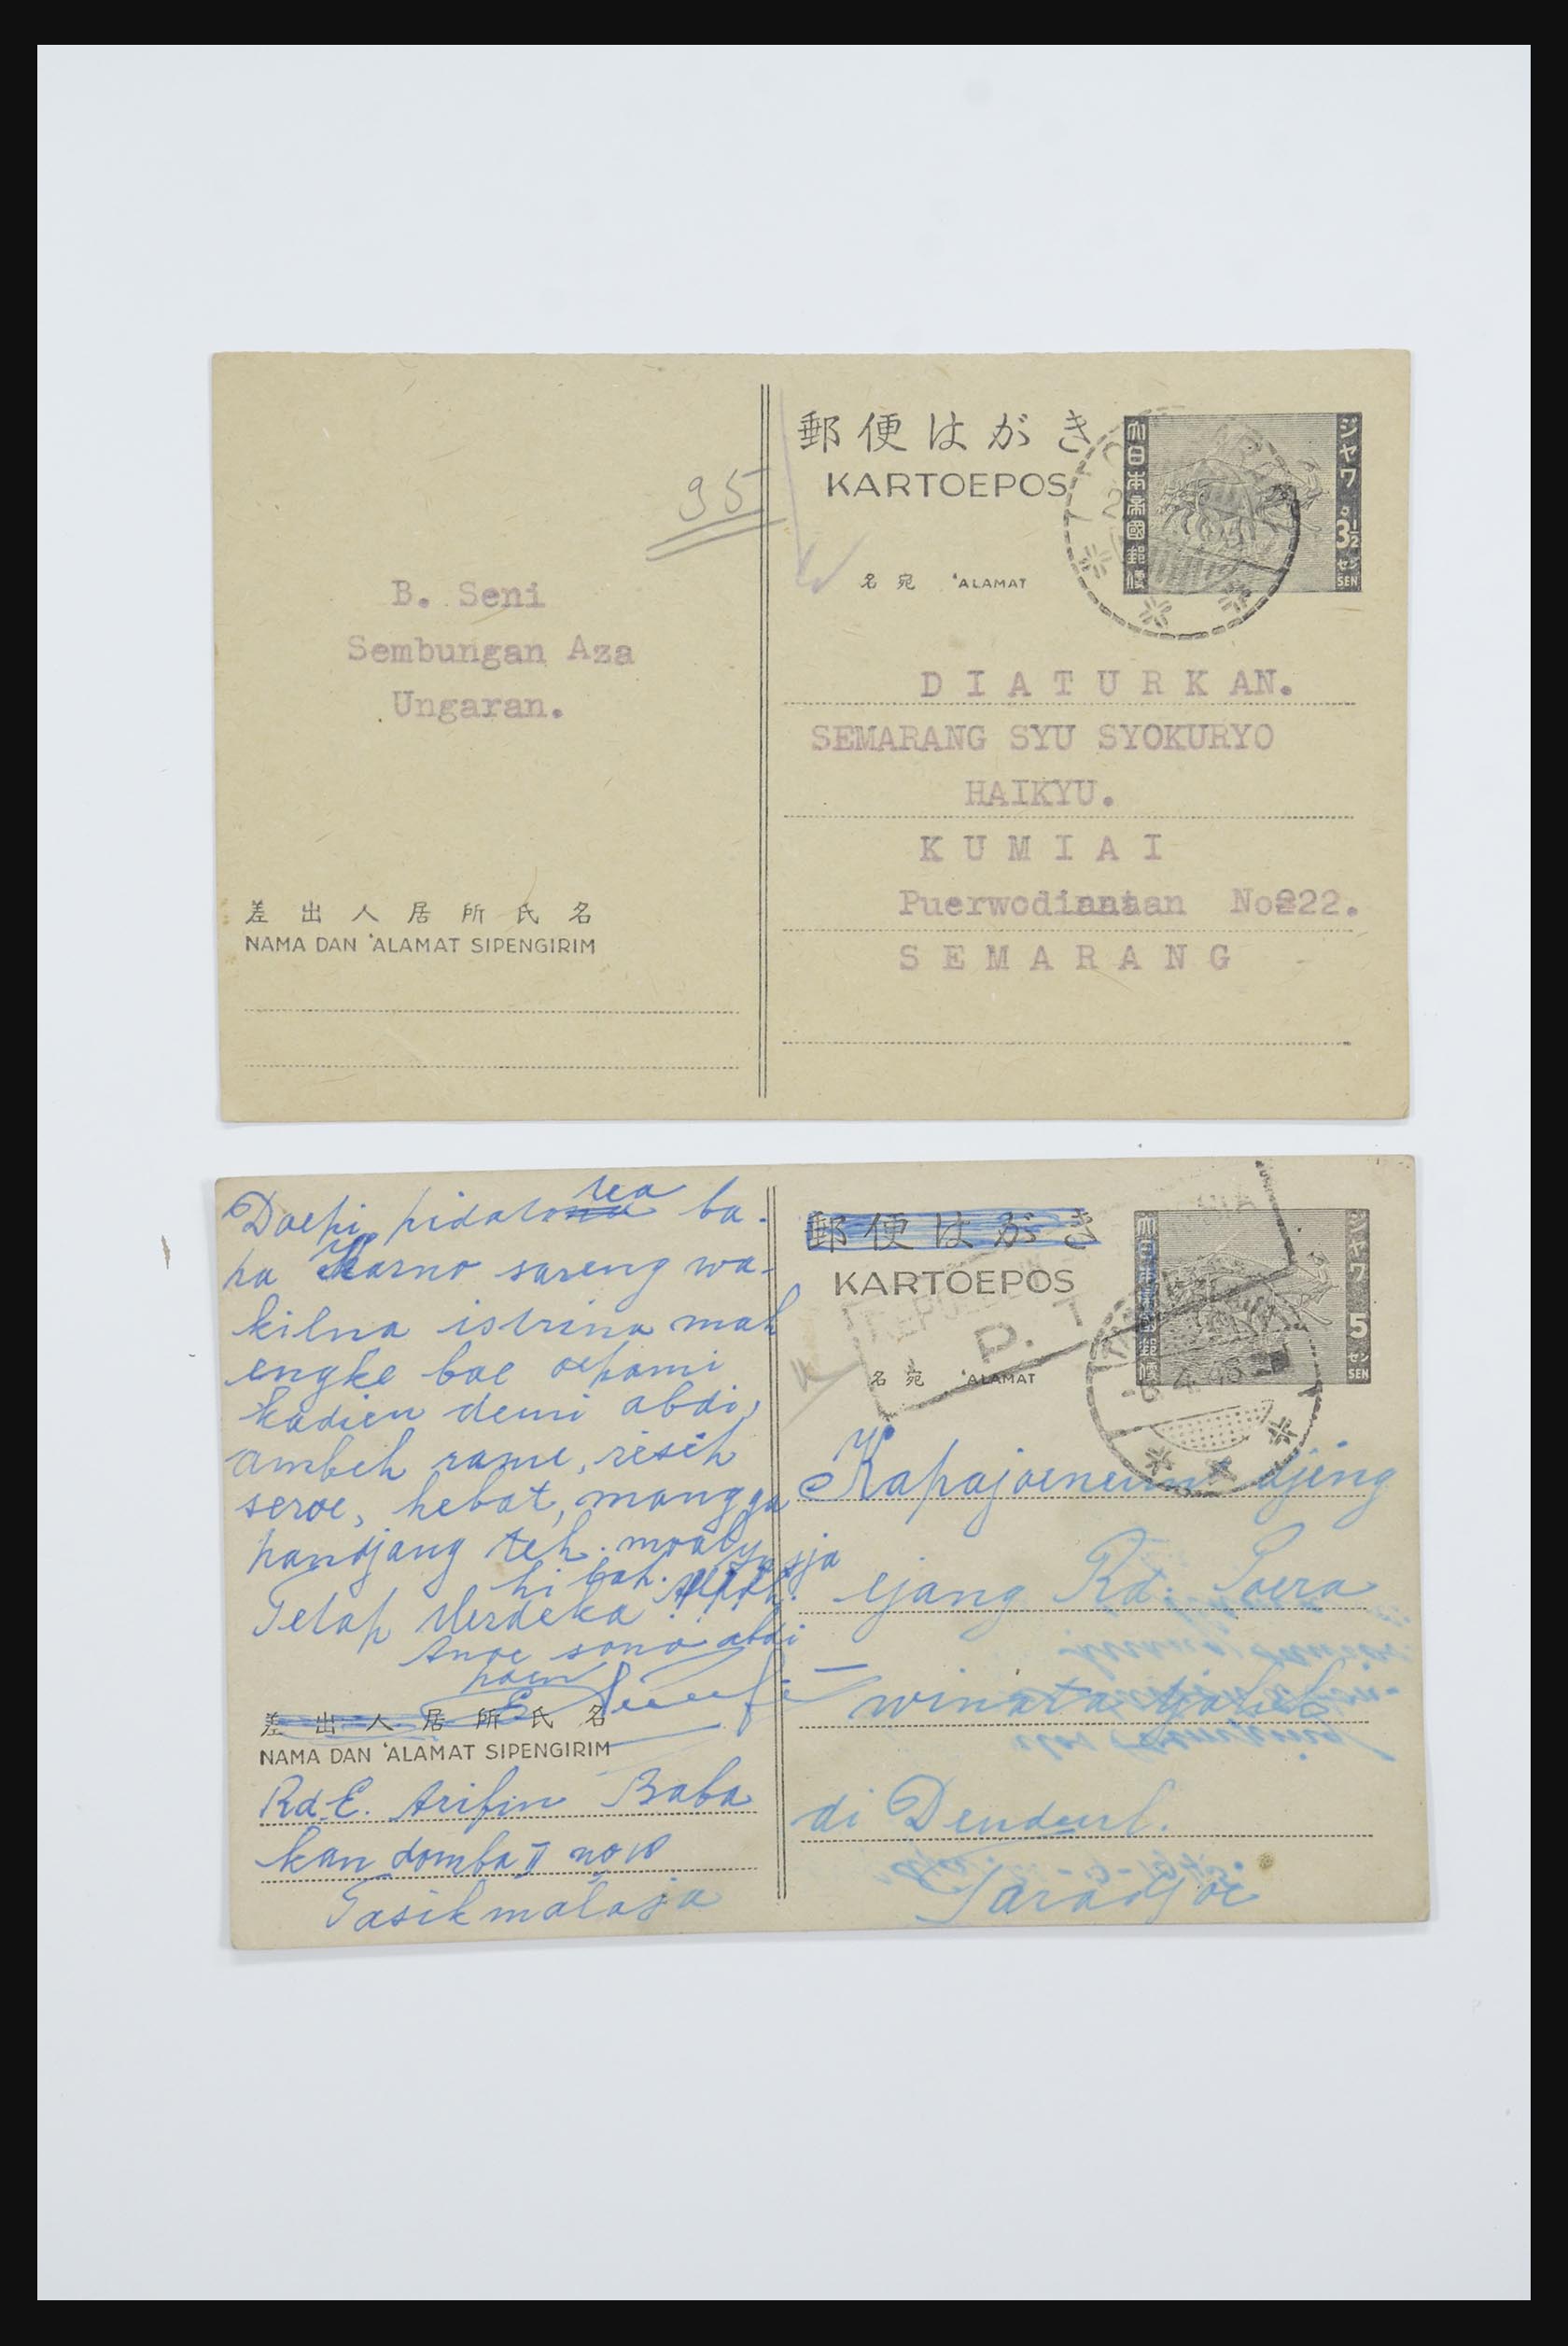 郵便はがき
KARTOEPOS
名宛 'ALAMAT
大日本帝國郵便
ジャワ
3½
セン
SEN
95
B. Seni
Sembungan Aza
Ungaran.
D I A T U R K AN.
SEMARANG SYU SYOKURYO
HAIKYU.
K U M I A I
No 222.
S E M A R A N G
差出人居所氏名
NAMA DAN 'ALAMAT SIPENGIRIM
Doepi pidato tea ba-
pa Karno sareng wa-
kilna istrina mah
engke bae oepami
kadieu demi abdi,
ambeh rame, resih
seroe, hebat, mangga
pandjang teh.
Tetap Merdeka !!!
Anoe sono abdi
差出人居所氏名
NAMA DAN 'ALAMAT SIPENGIRIM
Rd. E. Arifin Baba
kan domba II no 10
Tasikmalaja
郵便はがき
KARTOEPOS
名宛 'ALAMAT
大日本帝國郵便
ジャワ
5
セン
SEN
P. T
Kapajoeneun djeng
ejang Rd. Poera
winata
di Dendeul.
Taradjoe